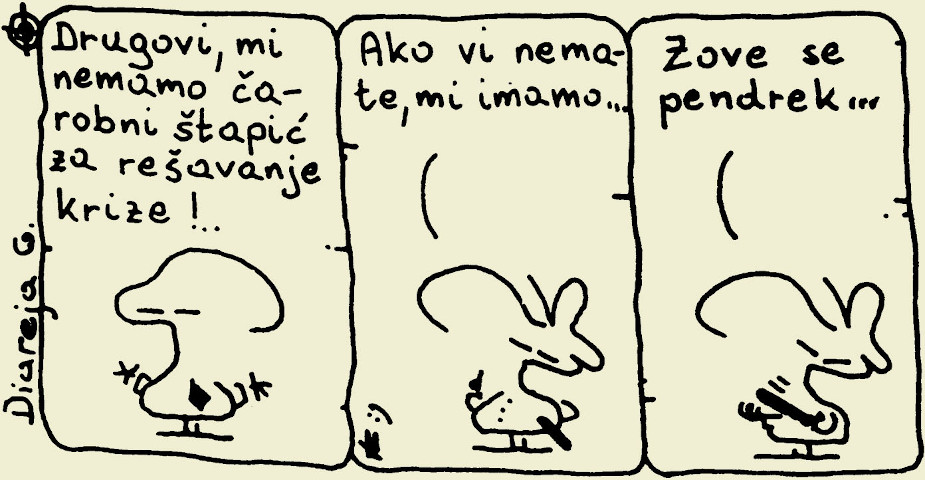 Drugovi, mi
nemamo ča-
robni štapić
za rešavanje
krize !...
Ako vi nema-
te, mi imamo...
Zove se
pendrek...
Diareja G.